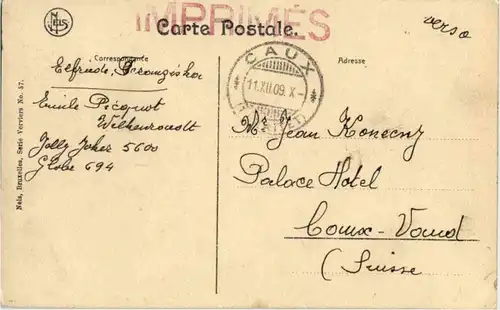 IMPRIMÉS
verso
NELS
Carte Postale.
Correspondance
Adresse
CAUX
11.XII.09.X-
Elfriede,
Emile Picquot
Jolly Joker 5600
Globe 694
Mr Jean Konecny
Palace Hotel
Caux-Vaud
(Suisse
Nels, Bruxelles, Serie Verviers No. 57.